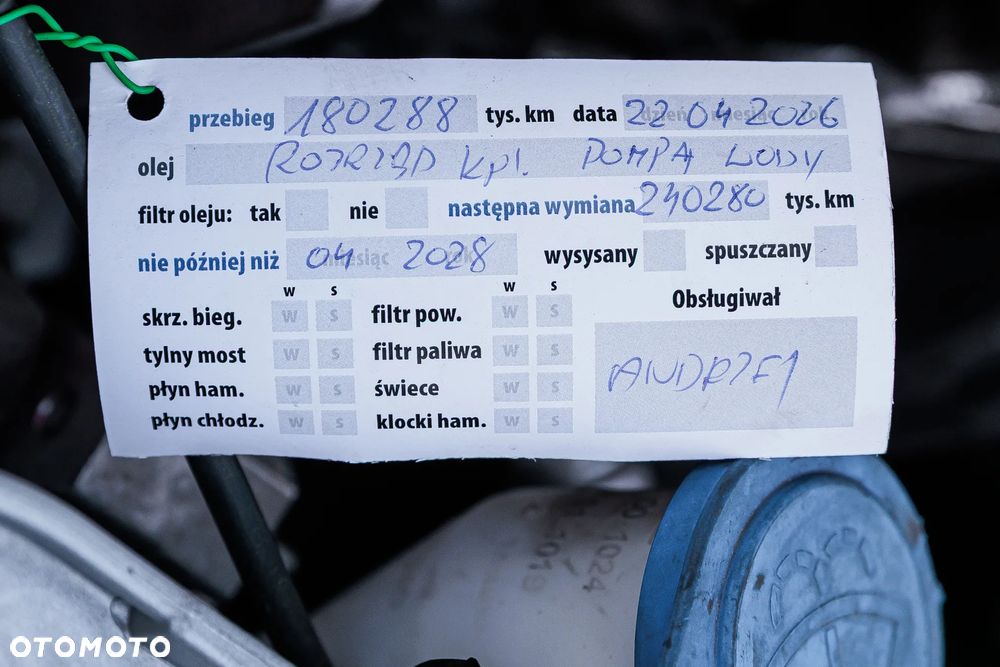 przebieg 180288 tys. km data 22 04 2026
olej ROZRZĄD kpl. POMPA WODY
filtr oleju: tak nie następna wymiana 240280 tys. km
nie później niż 04 2028 wysysany spuszczany
w s w s Obsługiwał
skrz. bieg. w s filtr pow. w s
tylny most w s filtr paliwa w s
płyn ham. w s świece w s
płyn chłodz. w s klocki ham. w s
ANDRZEJ
OTOMOTO